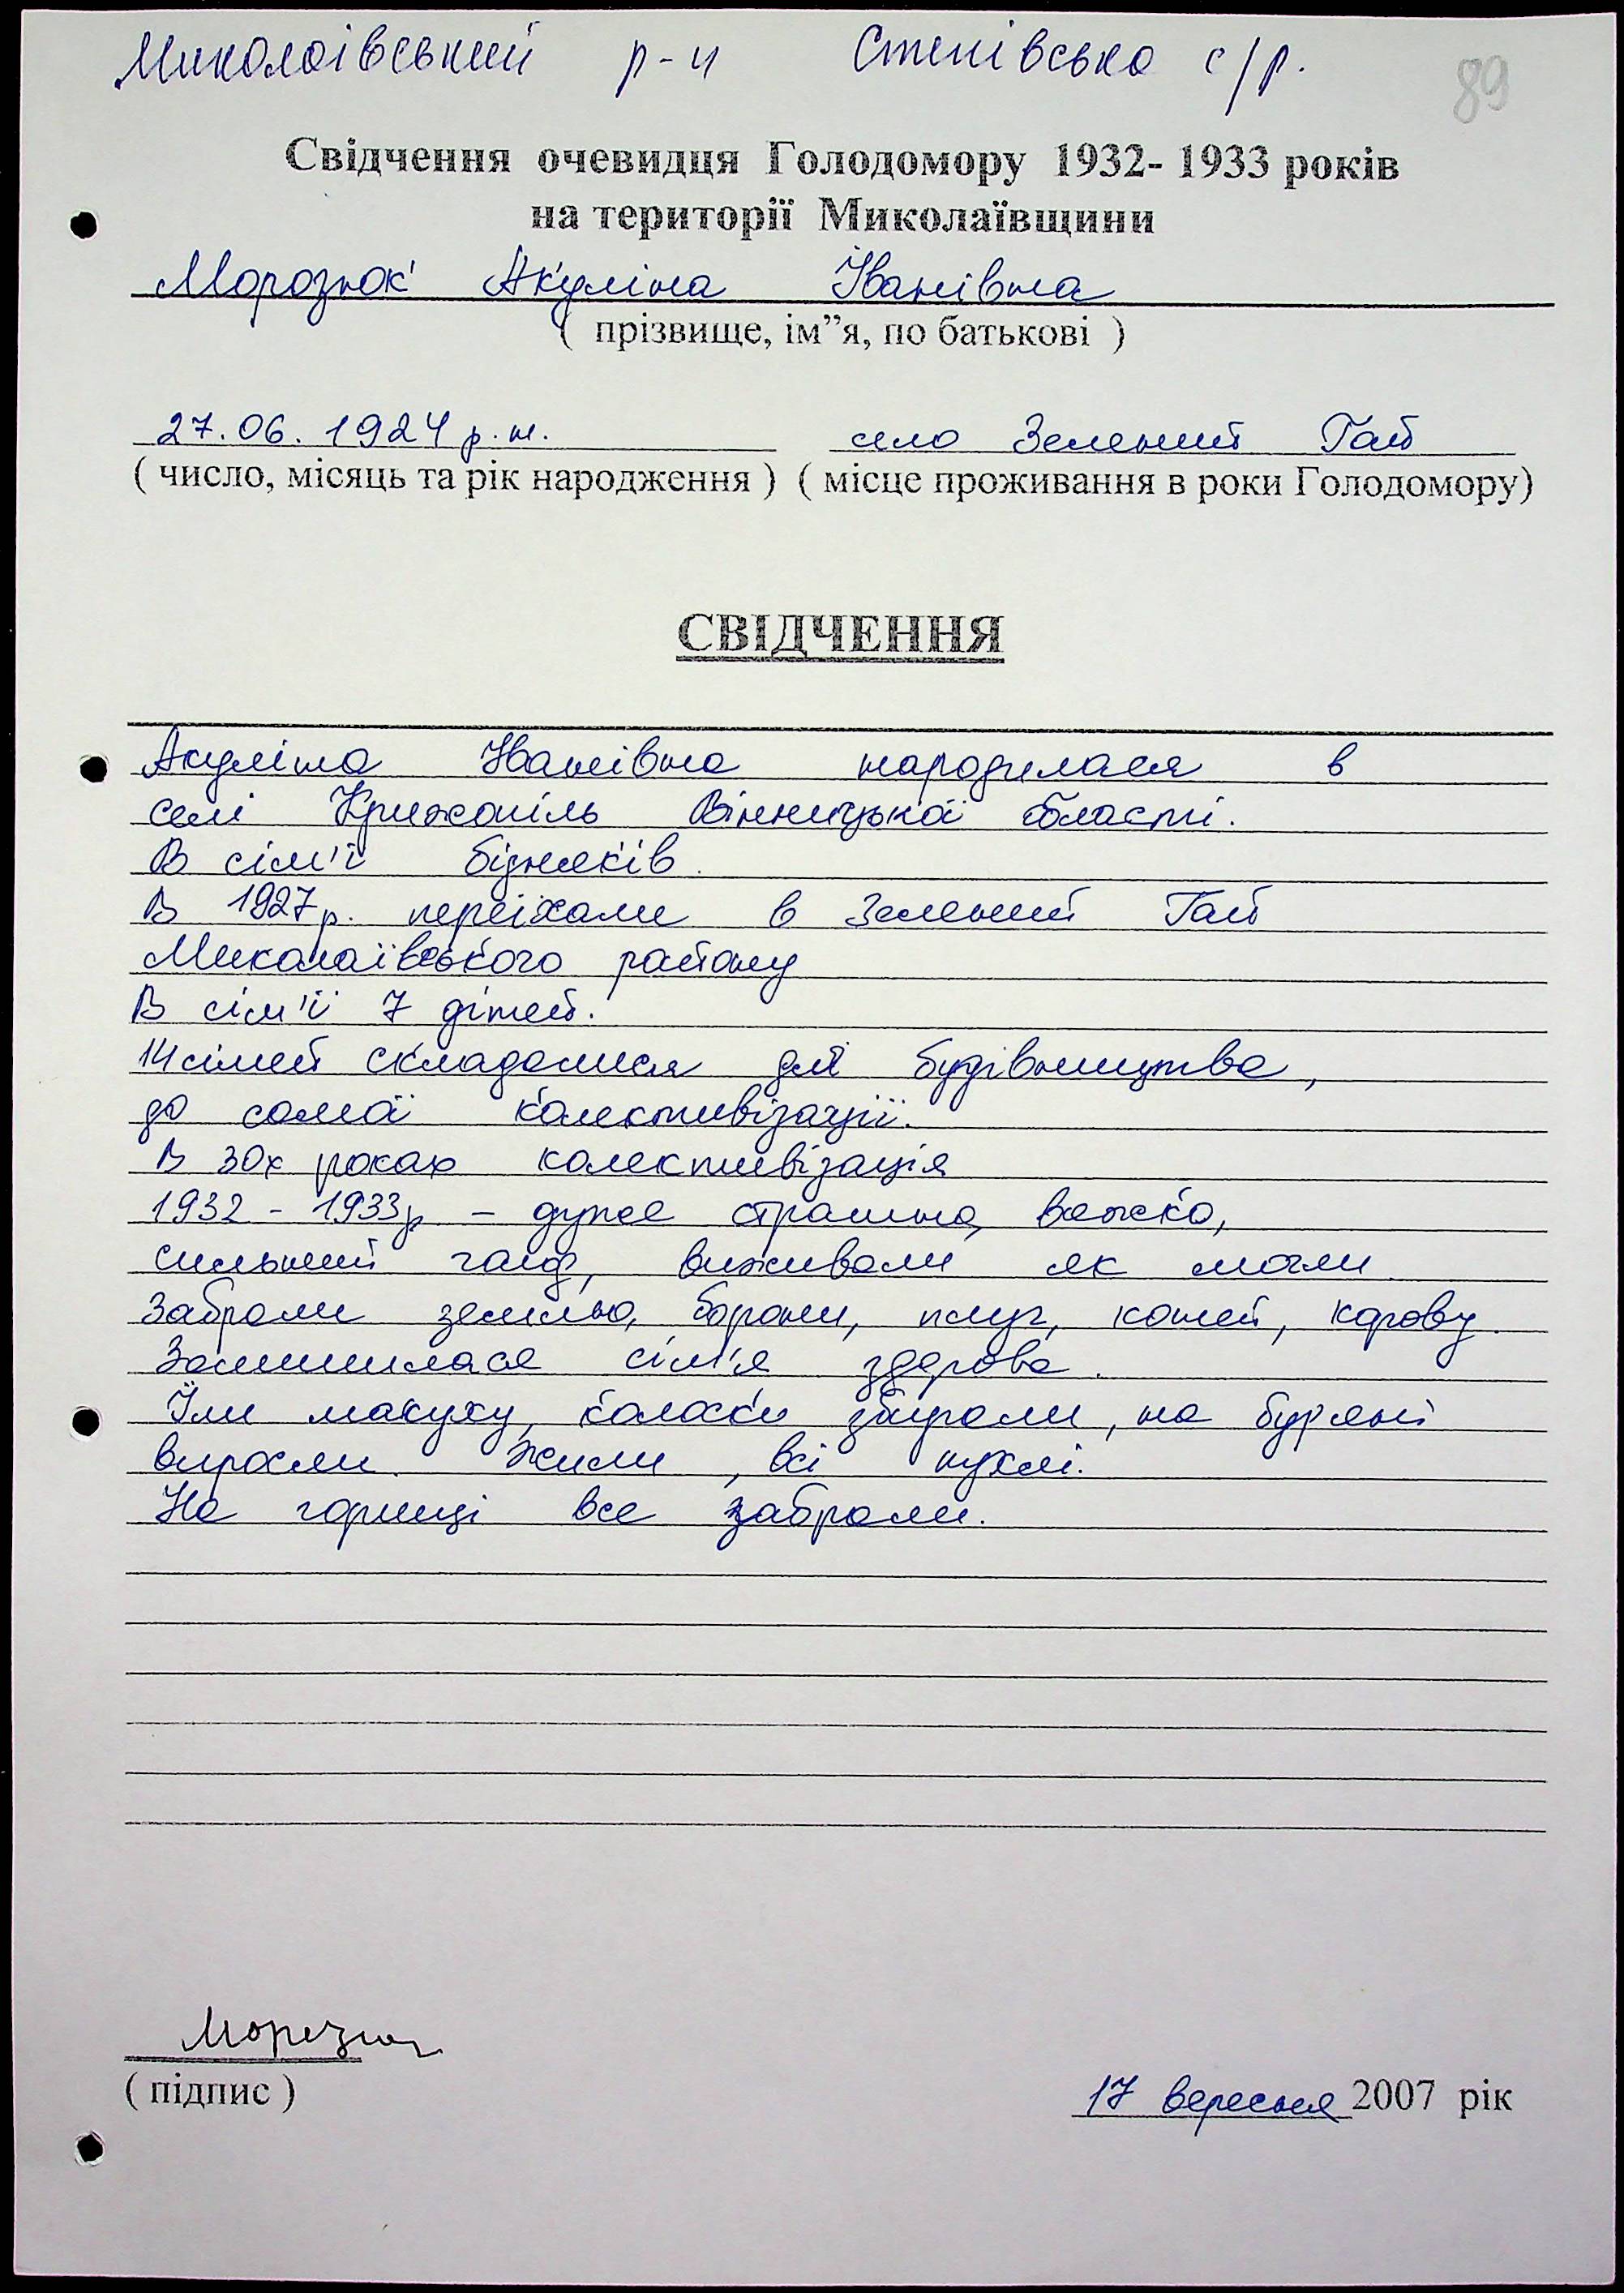 Миколаївський р-н Степівська с/р.
89
Свідчення очевидця Голодомору 1932- 1933 років
на території Миколаївщини
Морозюк Акуліна Іванівна
( прізвище, ім”я, по батькові )
27.06.1924 р.н. село Зелений Гай
( число, місяць та рік народження ) ( місце проживання в роки Голодомору)
СВІДЧЕННЯ
Акуліна Іванівна народилася в
селі Крижопіль Вінницької області.
В сім'ї бідняків.
В 1927р. переїхали в Зелений Гай
Миколаївського району
В сім'ї 7 дітей.
14 сімей складалися для будівництва,
до самої колективізації.
В 30х роках колективізація
1932 - 1933р - дуже страшно, важко,
сильний голод, виживали як могли.
Забрали землю, борони, плуг, коней, корову.
Залишилася сім'я здорова.
Їли макуху, колоски збирали, на бур'яні
виросли. Жили, всі пухлі.
На горищі все забрали.
Морозюк
( підпис )
17 вересня 2007 рік